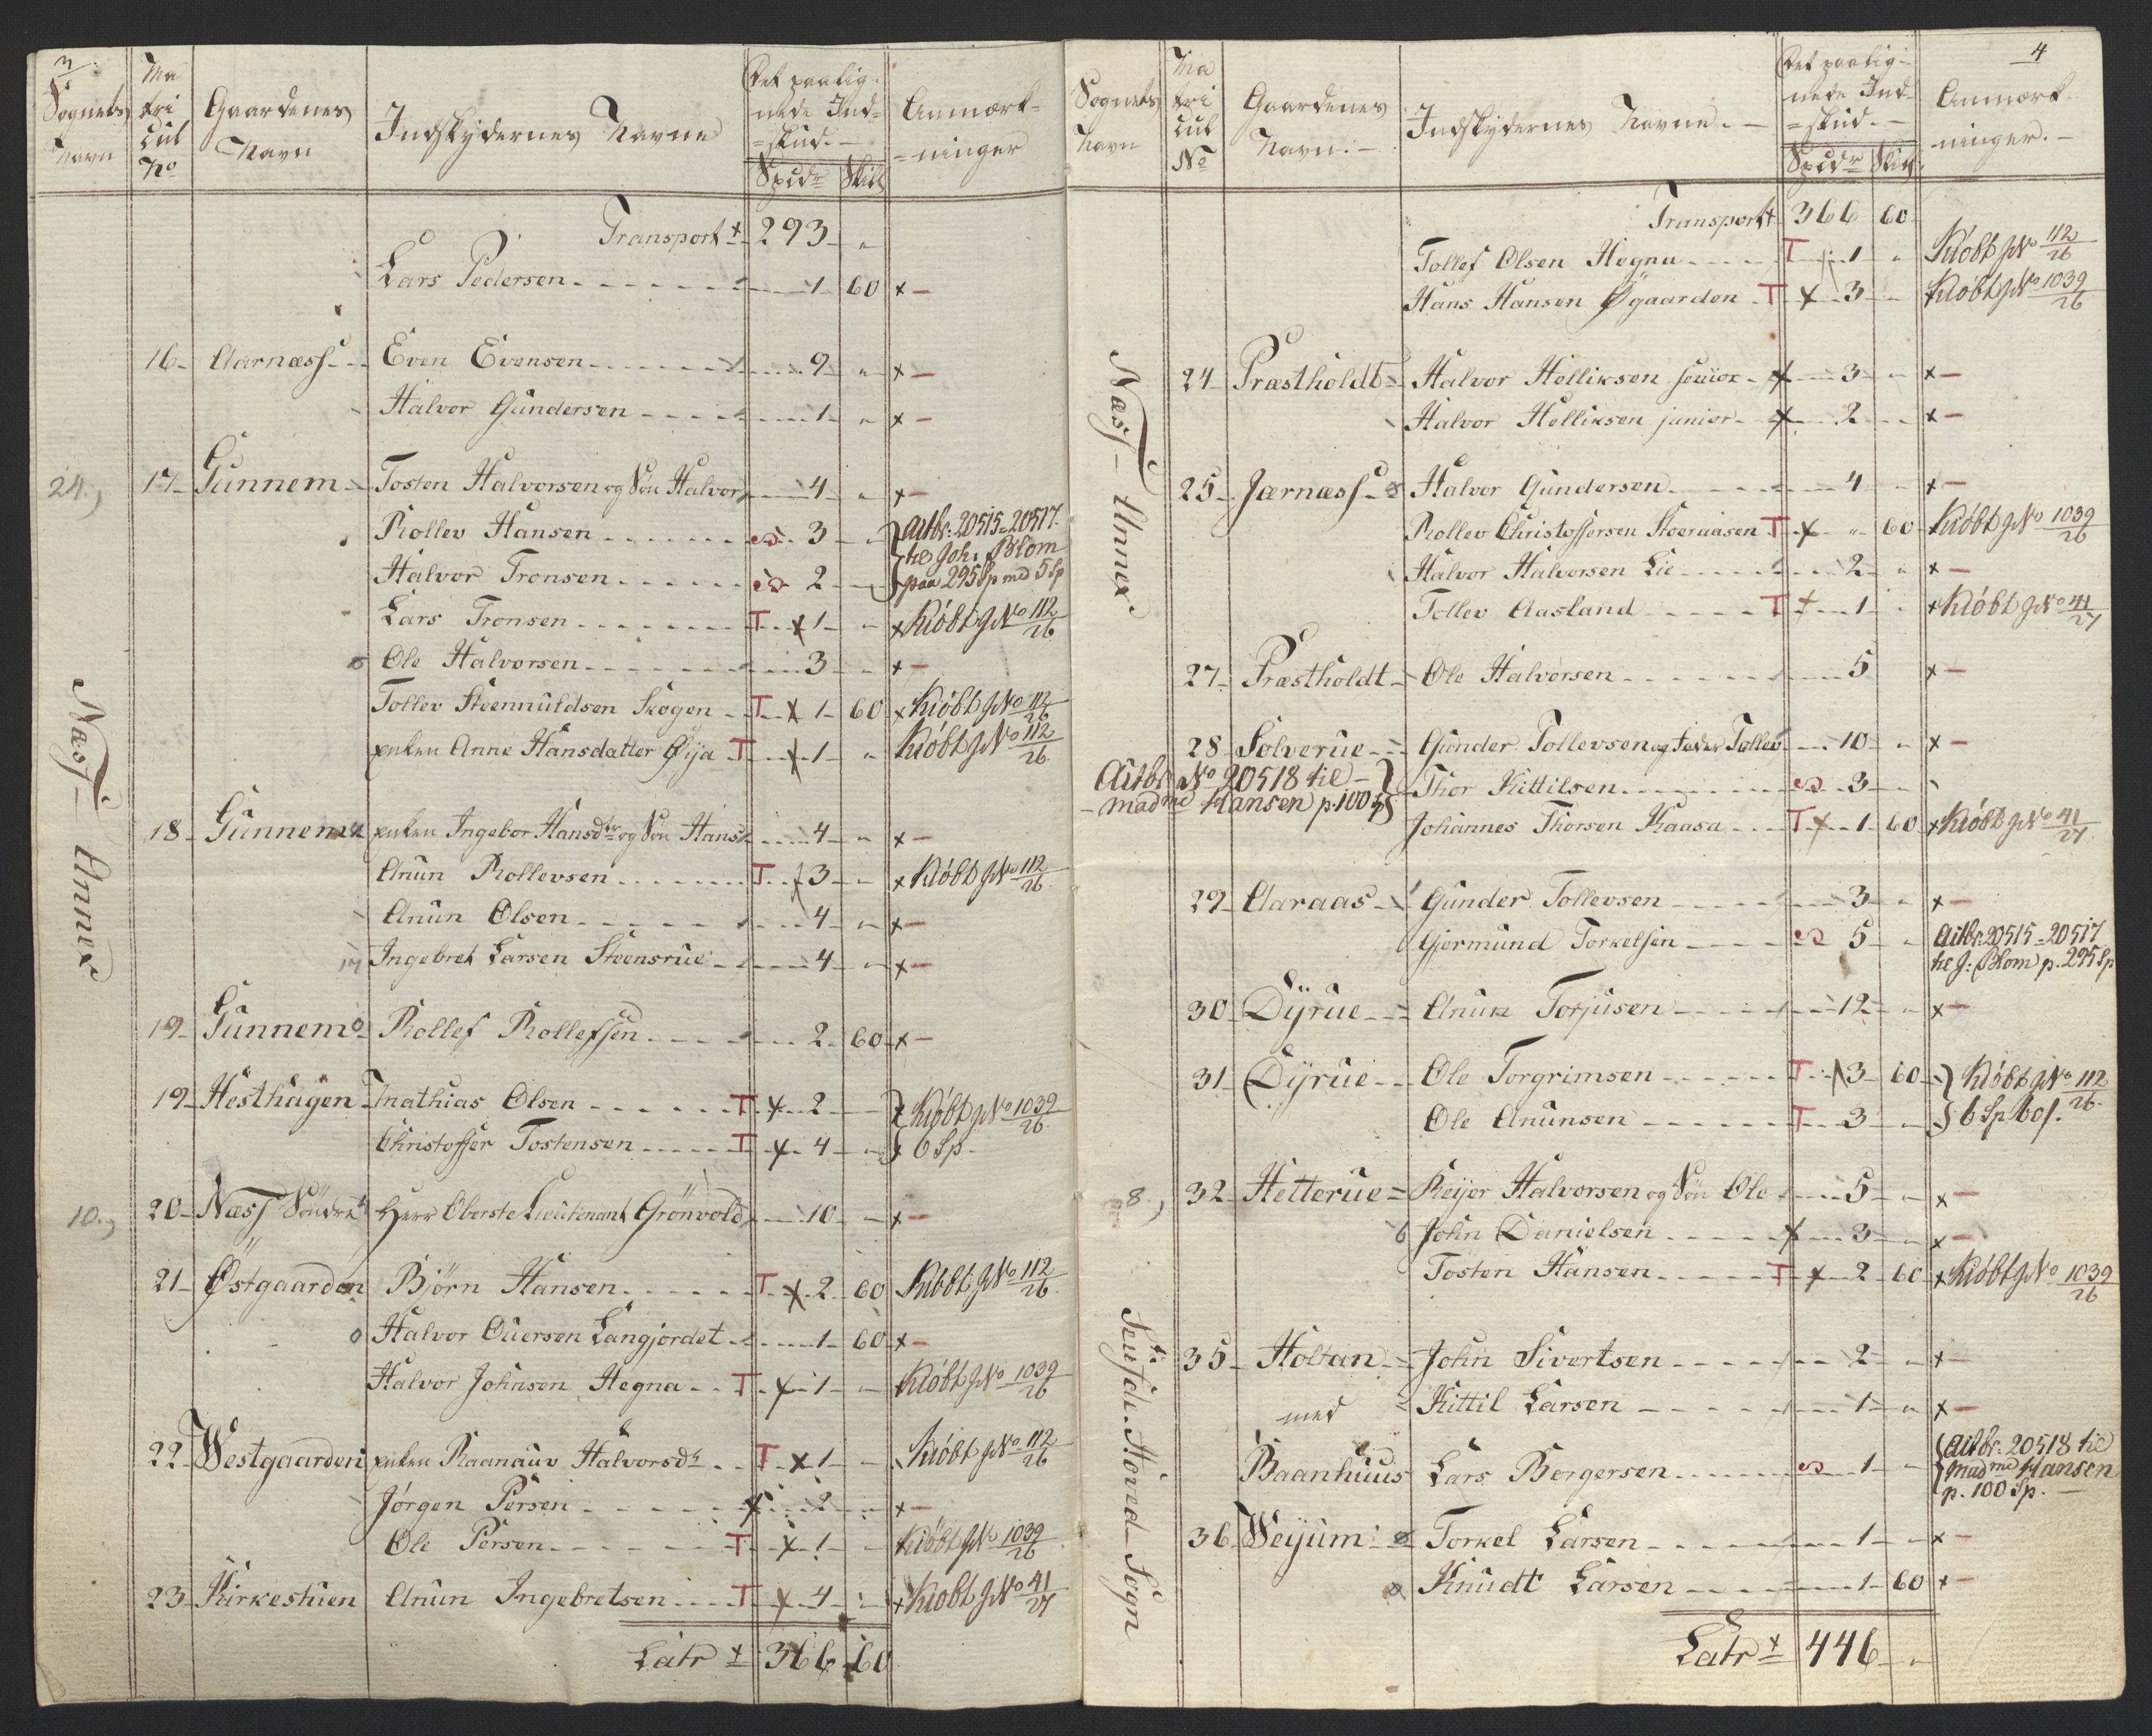 3
Sognets Navn | Matricul No | Gaardenes Navn | Indskydernes Navne | Det paalignede Indskud. Spdr Skill | Anmærkninger
Transport 293 -
Lars Pedersen 1 60 x -
16 Aarnæss Even Evensen 9 " x -
Halvor Gundersen 1 " x -
24.) 17 Gunnem Tosten Halvorsen og Søn Halvor 4 " x -
Rollev Hansen 3 " Autbr: 20515-20517.
Halvor Tronsen 2 til Joh: Blom paa 295 Sp med 5 Sp
Lars Tronsen T x 1 " x Kiöbt JNo 112/26
Ole Halvorsen 3 " x -
Tollev Steennuldsen Skogen T x 1 60 x Kiöbt JNo 112/26
enken Anne Hansdatter Øija T x 1 " Kiöbt JNo 112/26
18 Gunnem enken Ingebor Hansdtr og Søn Hans 4 " x -
Anun Rollevsen T x 3 " x Kiöbt JNo 112/26
Anun Olsen 4 " x -
Ingebret Larsen Steensrue 4 " x -
19 Gunnem Rollef Rollefssen 2 60 x -
19 Hesthagen Mathias Olsen T x 2 Kiöbt JNo 1039/26
Christoffer Tostensen T x 4 " 6 Sp.
10.) 20 Næss Söndre Herr Oberste Lieutenant Grönvold 10 x -
21 Østgaarden Björn Hansen T x 2 60 Kiöbt JNo 112/26
Halvor Ouersen Langjordet 1 60 x -
Halvor Johnsen Hegna T x 1 Kiöbt JNo 1039/26
22 Westgaarden enken Raanauv Halvorsdr T x 1 Kiöbt JNo 112/26
Jörgen Persen x 2 x -
Ole Persen T x 1 Kiöbt JNo 1039/26
23 Kirkestuen Anun Ingebretsen T x 4 x Kiöbt JNo 41/27
Latr 366 60
Næss Annex
4
Sognets Navn | Matricul No | Gaardenes Navn. | Indskydernes Navne. | Det paalignede Indskud. Spdr Skill | Anmærkninger.
Transport 366 60
Tollef Olsen Hogna T 1 " Kiöbt JNo 112/26
Hans Hansen Øgaarden T x 3 Kiöbt JNo 1039/26
24 Præstholdt Halvor Helliksen senior x 3 " x -
Halvor Helliksen junior x 2 x -
25 Jærnæss Halvor Gundersen 4 x -
Rollev Christoffersen Steeraasen T x " 60 Kiöbt JNo 1039/26
Halvor Halvorsen Lie 2 " x -
Tollev Aasland T x 1 x Kiöbt JNo 41/27
27 Præstholdt Ole Halvorsen 5 x -
28 Solverue Gunder Tollevsen og Fader Tollev 10 " x -
Autbr No 20518 til Thor Kittilsen 3 "
Madme Hansen p. 100 Sp Johannes Thorsen Kaasa T x 1 60 x Kiöbt JNo 41/27
29 Aaraas Gunder Tollevsen 3 " x -
Gjermund Torkelsen 5 " Autbr. 20515-20517 til J: Blom p. 295 Sp
30 Dÿrue Anun Torjusen 12 " x -
31 Dÿrue Ole Torgrimsen T x 3 60 Kiöbt JNo 112/26.
Ole Anunsen T 3 6 Sp 60 s.
8.) 32 Hetterue Reijer Halvorsen og Søn Ole 5 x -
John Danielsen x 3 x -
Tosten Hansen T x 2 60 x Kiöbt JNo 1039/26
35 Holtan John Sivertsen 2 x -
med Kittil Larsen 1 " x -
Baanhuus Lars Borgersen 1 " Autbr: 20518 til Madme Hansen p. 100 Sp.
36 Weÿum Torkel Larsen 1 x -
Knudt Larsen 1 60 x -
Latr 446 "
Næss Annex
Hoved Sogn